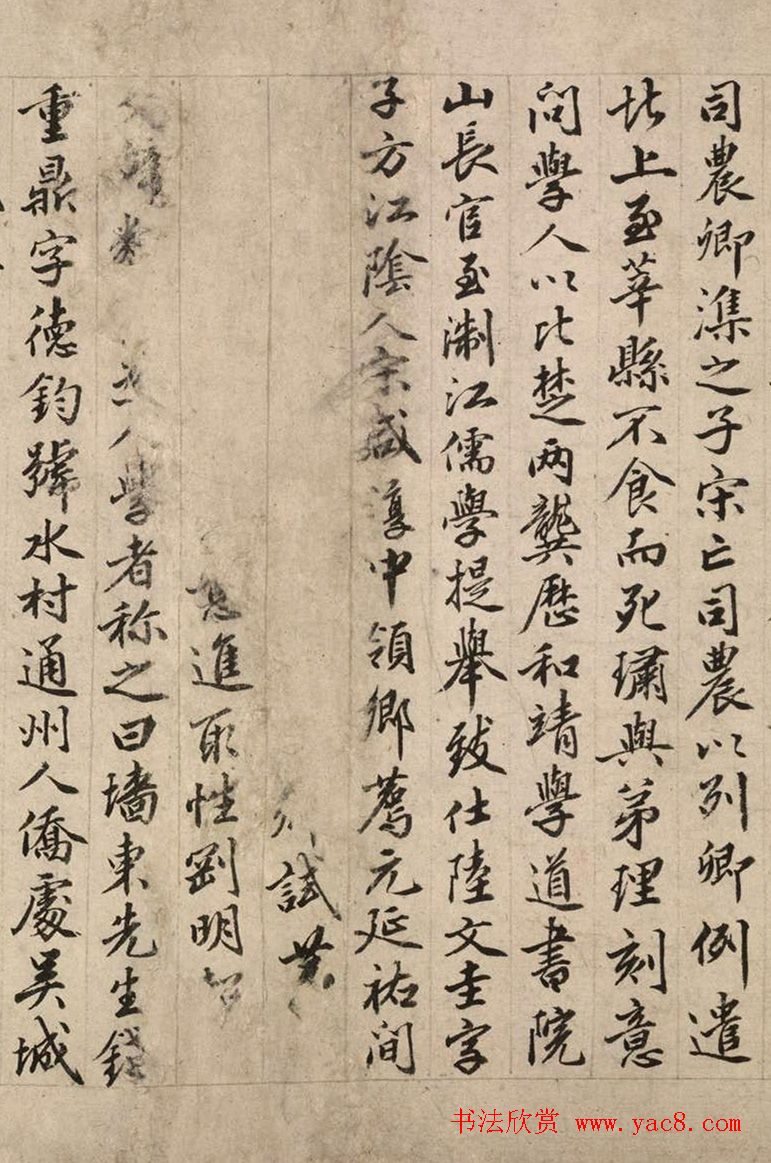 司農卿潗之子宋亡司農以列卿例遣
北上至莘縣不食而死璛與弟理刻意
問學人以比楚两龔歷和靖學道書院
山長官至淛江儒學提舉致仕陸文圭字
子方江陰人宋咸淳中領鄉薦元延祐间
試
進取性劉明
人學者称之曰墻東先生錢
重鼎字德鈞號水村通州人僑處吴城
书法欣赏 www.yac8.com